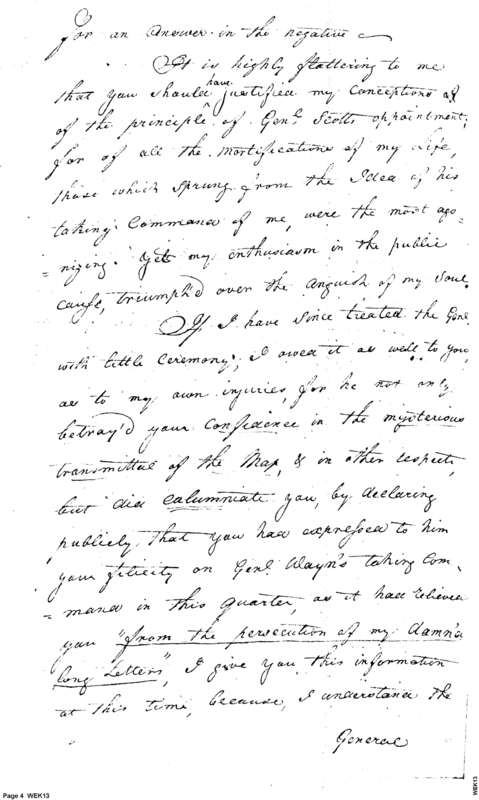 for an answer in the negative
It is highly flattering to me
that you should have justified my conceptions of
of the principle of Genl Scotts appointment;
for of all the mortifications of my life,
those which sprung from the Idea of his
taking Command of me, were the most ago
=nizing. Yet my enthusiasm in the public
cause, triumph'd over the anguish of my soul.
If I have since treated the Genl
with little ceremony, I owed it as well to you,
as to my own injuries, for he not only
betray'd your Confidence in the mysterious
transmittal of the Map, & in other respects,
but did calumniate you, by declaring
publicly that you had expressed to him
your felicity on Genl Wayn's taking Com,
=mand in this quarter, as it had relieved
you "from the persecution of my damn'd
long Letters", I give you this information
at this time, because, I understand the
General
Page 4 WEK13
WEK13